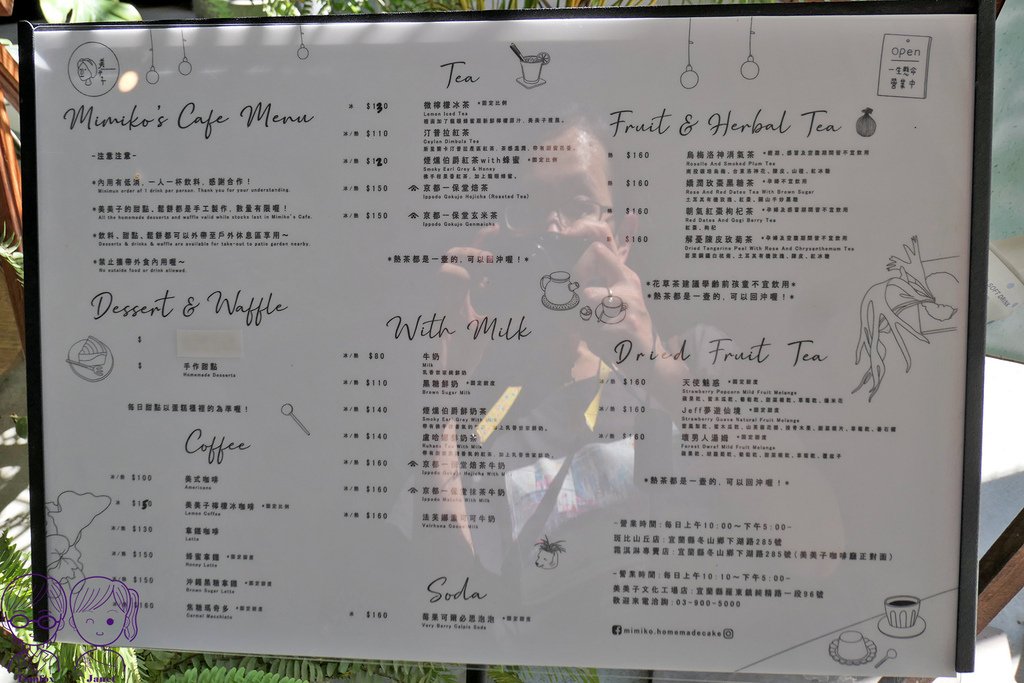 Mimiko's Cafe Menu
-注意注意-
*內用有低消，一人一杯飲料，感謝合作！
Minimum order of 1 drink per person. Thank you for your understanding.
*美美子的甜點、鬆餅都是手工製作，數量有限喔！
All the homemade desserts and waffle valid while stocks last in Mimiko's Cafe.
*飲料、甜點、鬆餅都可以外帶至戶外休息區享用～
Desserts & drinks & waffle are available for take-out to patio garden nearby.
*禁止攜帶外食內用喔～
No outside food or drink allowed.
Dessert & Waffle
$
$ 手作甜點
Homemade Desserts
每日甜點以蛋糕櫃裡的為準喔！
Coffee
冰/熱 $100 美式咖啡
Americano
冰 美美子檸檬冰咖啡 *固定比例
Lemon Coffee
冰/熱 $130 拿鐵咖啡
Latte
冰/熱 $150 蜂蜜拿鐵 *固定甜度
Honey Latte
冰/熱 $150 沖繩黑糖拿鐵 *固定甜度
Brown Sugar Latte
$160 焦糖瑪奇朵 *固定甜度
Caramel Macchiato
Tea
冰 $130 微檸檬冰茶 *固定比例
Lemon Iced Tea
冰/熱 $110 汀普拉紅茶
Ceylon Dimbula Tea
冰/熱 $120 煙燻伯爵紅茶with蜂蜜 *固定比例
Smoky Earl Grey & Honey
冰/熱 $150 京都一保堂焙茶
Ippodo Gokujo Hojicha (Roasted Tea)
冰/熱 $150 京都一保堂玄米茶
Ippodo Gokujo Genmaicha
*熱茶都是一壺的，可以回沖喔！*
With Milk
冰/熱 $80 牛奶
Milk
冰/熱 $110 黑糖鮮奶 *固定甜度
Brown Sugar Milk
冰/熱 $140 煙燻伯爵鮮奶茶
Smoky Earl Grey With Milk
冰/熱 $140 盧哈娜鮮奶茶
Ruhana Tea With Milk
冰/熱 $160 京都一保堂焙茶牛奶
Ippodo Gokujo Hojicha With Milk
冰/熱 $160 京都一保堂抹茶牛奶
Ippodo Matcha With Milk
冰/熱 $160 法芙娜可可牛奶
Valrhona Cocoa Milk
Soda
冰 $160 莓果可爾必思泡泡 *固定甜度
Very Berry Calpis Soda
open
一生懸命
營業中
Fruit & Herbal Tea
熱 $160 烏梅洛神消氣茶
Roselle And Smoked Plum Tea
熱 $160 嬌潤玫棗黑糖茶
Rose And Red Dates Tea With Brown Sugar
熱 $160 朝氣紅棗枸杞茶
Red Dates And Gogi Berry Tea
紅棗、枸杞
熱 $160 解憂陳皮玫菊茶
Dried Tangerine Peel With Rose And Chrysanthemum Tea
*花草茶建議學齡前孩童不宜飲用*
*熱茶都是一壺的，可以回沖喔！*
Dried Fruit Tea
冰/熱 $160 天使魅惑 *固定甜度
Strawberry Popcorn Mild Fruit Melange
冰/熱 $160 Jeff夢遊仙境 *固定甜度
Strawberry Guava Natural Fruit Melange
冰/熱 $160 壞男人湯姆 *固定甜度
Forest Dwarf Mild Fruit Melange
*熱茶都是一壺的，可以回沖喔！*
-營業時間：每日上午10:00～下午5:00-
斑比山丘店：宜蘭縣冬山鄉下湖路285號
霜淇淋專賣店：宜蘭縣冬山鄉下湖路285號(美美子咖啡廳正對面)
-營業時間：每日上午10:10～下午5:10-
美美子文化工場店：宜蘭縣羅東鎮純精路一段96號
歡迎來電洽詢：03-900-5000
mimiko.homemadecake
Janet